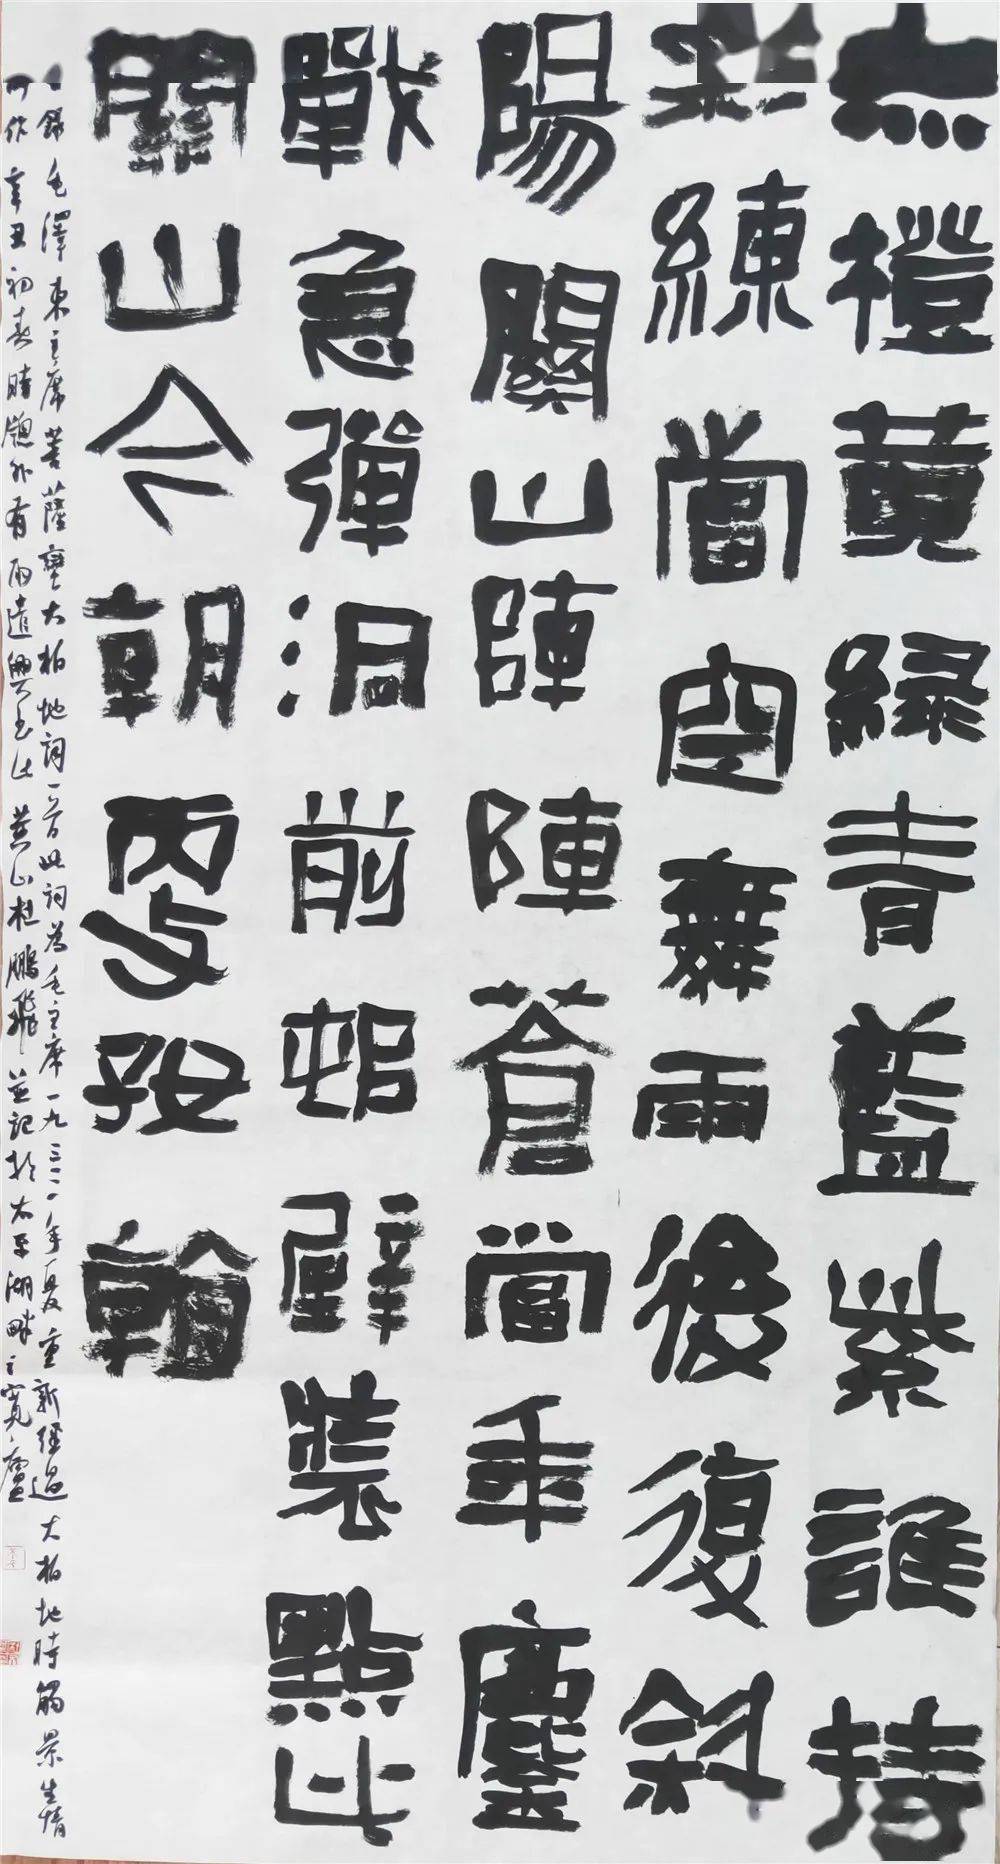 赤橙黃緑青藍紫誰持
彩練當空舞雨後復斜
陽關山陣陣蒼當年鏖
戰急彈洞前邨壁裝點此
關山今朝更好看
錄毛澤東主席菩薩蠻大柏地詞一首此詞為毛主席一九三三年夏重新經過大柏地時觸景生情
所作辛丑初春時牕外有雨遣興書此黄山杜鵬飛並記於太平湖畔之寬廬